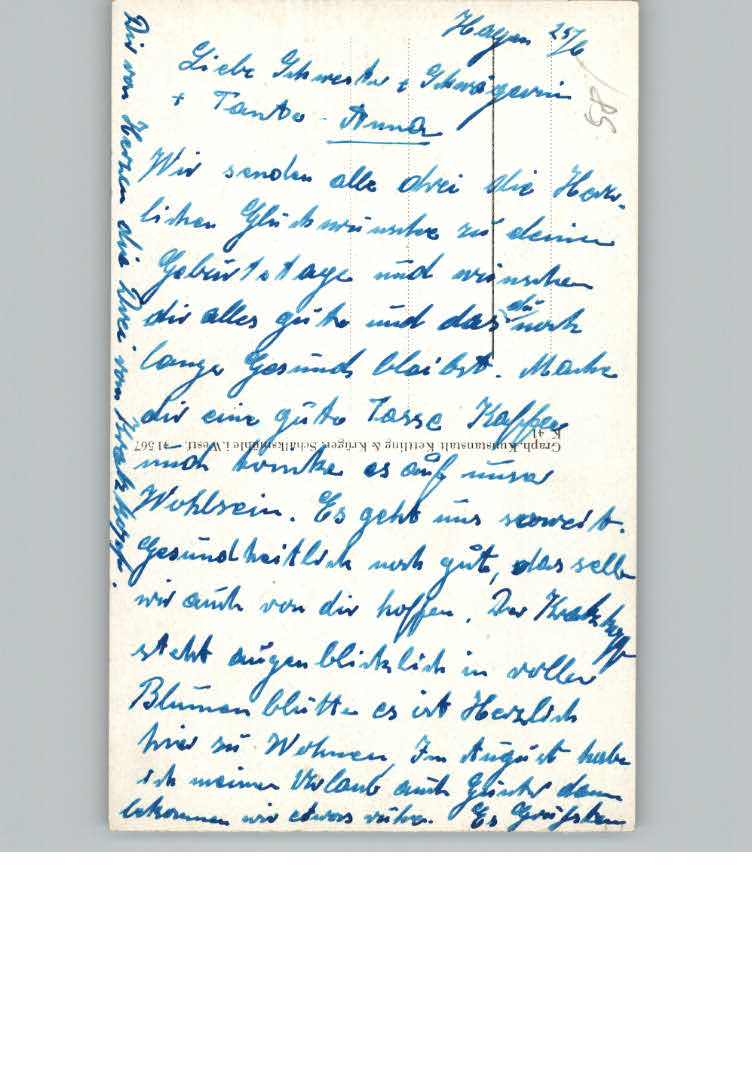 Hagen 25/6
Liebe Schwester + Schwägerin
+ Tante Anna
Wir senden alle drei die Herz-
lichen Glückwünsche zu deinem
Geburtstage und wünschen
dir alles gute und das du noch
lange Gesund bleibst. Mache
dir eine gute Tasse Kaffee
und trinke es auf unser
Wohlsein. Es geht uns soweit
Gesundheitlich noch gut, das selbe
wir auch von dir hoffen. Der Kratzkopf
steht augenblicklich in voller
Blumenblütte es ist Herzlich
hier zu Wohnen, Im August habe
ich meinen Urlaub auch Günter dann
bekommen wir etwas ruhe. Es Grüßten
Dir von Herzen die Drei vom Kratzkopf.
Graph. Kunstanstalt Kettling & Krüger, Schalksmühle i. Westf. 41 567
K 41
85